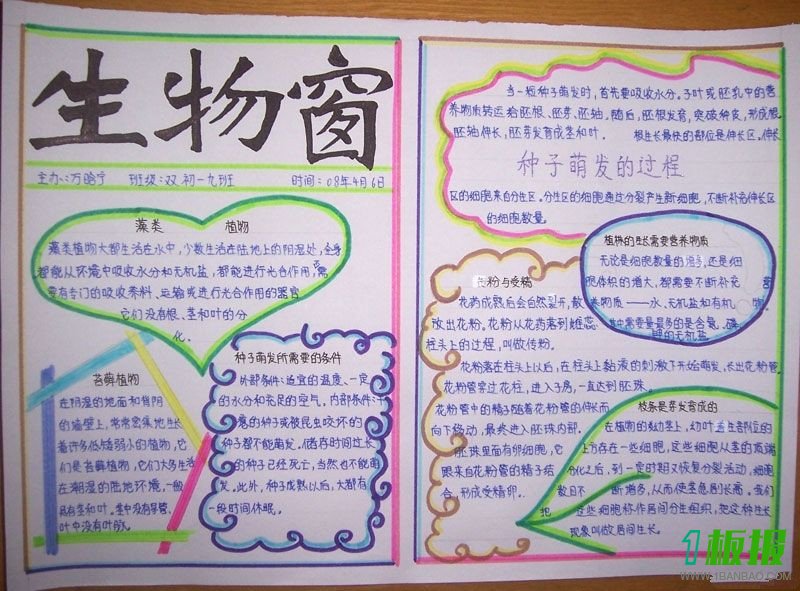 生物窗
主办:万晗宁 班级:双初一九班 时间:08年4月6日
藻类 植物
藻类植物大都生活在水中,少数生活在陆地上的阴湿处,全身
都能从环境中吸收水分和无机盐,都能进行光合作用,需
要有专门的吸收养料、运输或进行光合作用的器官
它们没有根、茎和叶的分
化.
苔藓植物
在阴湿的地面和背阴
的墙壁上,常常密集地生长
着许多低矮弱小的植物,它
们是苔藓植物,它们大多生活
在潮湿的陆地环境,一般
具有茎和叶。茎中没有导管,
叶中没有叶脉。
种子萌发所需要的条件
外部条件:适宜的温度、一定
的水分和充足的空气。内部条件:干
瘪的种子或被昆虫咬坏的
种子都不能萌发。储存时间过长
的种子已经死亡,当然也不能萌
发。此外,种子成熟以后,大都有
一段时间休眠。
当一粒种子萌发时,首先要吸收水分。子叶或胚乳中的营
养物质转运给胚根、胚芽、胚轴,随后,胚根发育,突破种皮,形成根
胚轴伸长,胚芽发育成茎和叶. 根生长最快的部位是伸长区。伸长
种子萌发的过程
区的细胞来自分生区。分生区的细胞通过分裂产生新细胞,不断补充伸长区
的细胞数量.
植株的生长需要营养物质
无论是细胞数量的增多,还是细
胞体积的增大,都需要不断补充营
养物质——水、无机盐和有机物.
其中需要量最多的是含氮、磷
钾的无机盐
花粉与受精
花药成熟后会自然裂开,散
放出花粉。花粉从花药落到雌蕊
柱头上的过程,叫做传粉.
花粉落在柱头上以后,在柱头上黏液的刺激下开始萌发,长出花粉管.
花粉管穿过花柱,进入子房,一直达到胚珠.
花粉管中的精子随着花粉管的伸长而
向下移动,最终进入胚珠内部.
胚珠里面有卵细胞,它
跟来自花粉管的精子结
合,形成受精卵.
枝条是芽发育成的
在植物的幼茎上,幼叶着生部位的
上方存在一些细胞,这些细胞从茎的顶端
分化之后,到一定时期又恢复分裂活动,细胞
数目不断增多,从而使茎急剧长高。我们
把这些细胞称作居间分生组织,把这种生长
现象叫做居间生长.
1板报
WWW.1BANBAO.COM